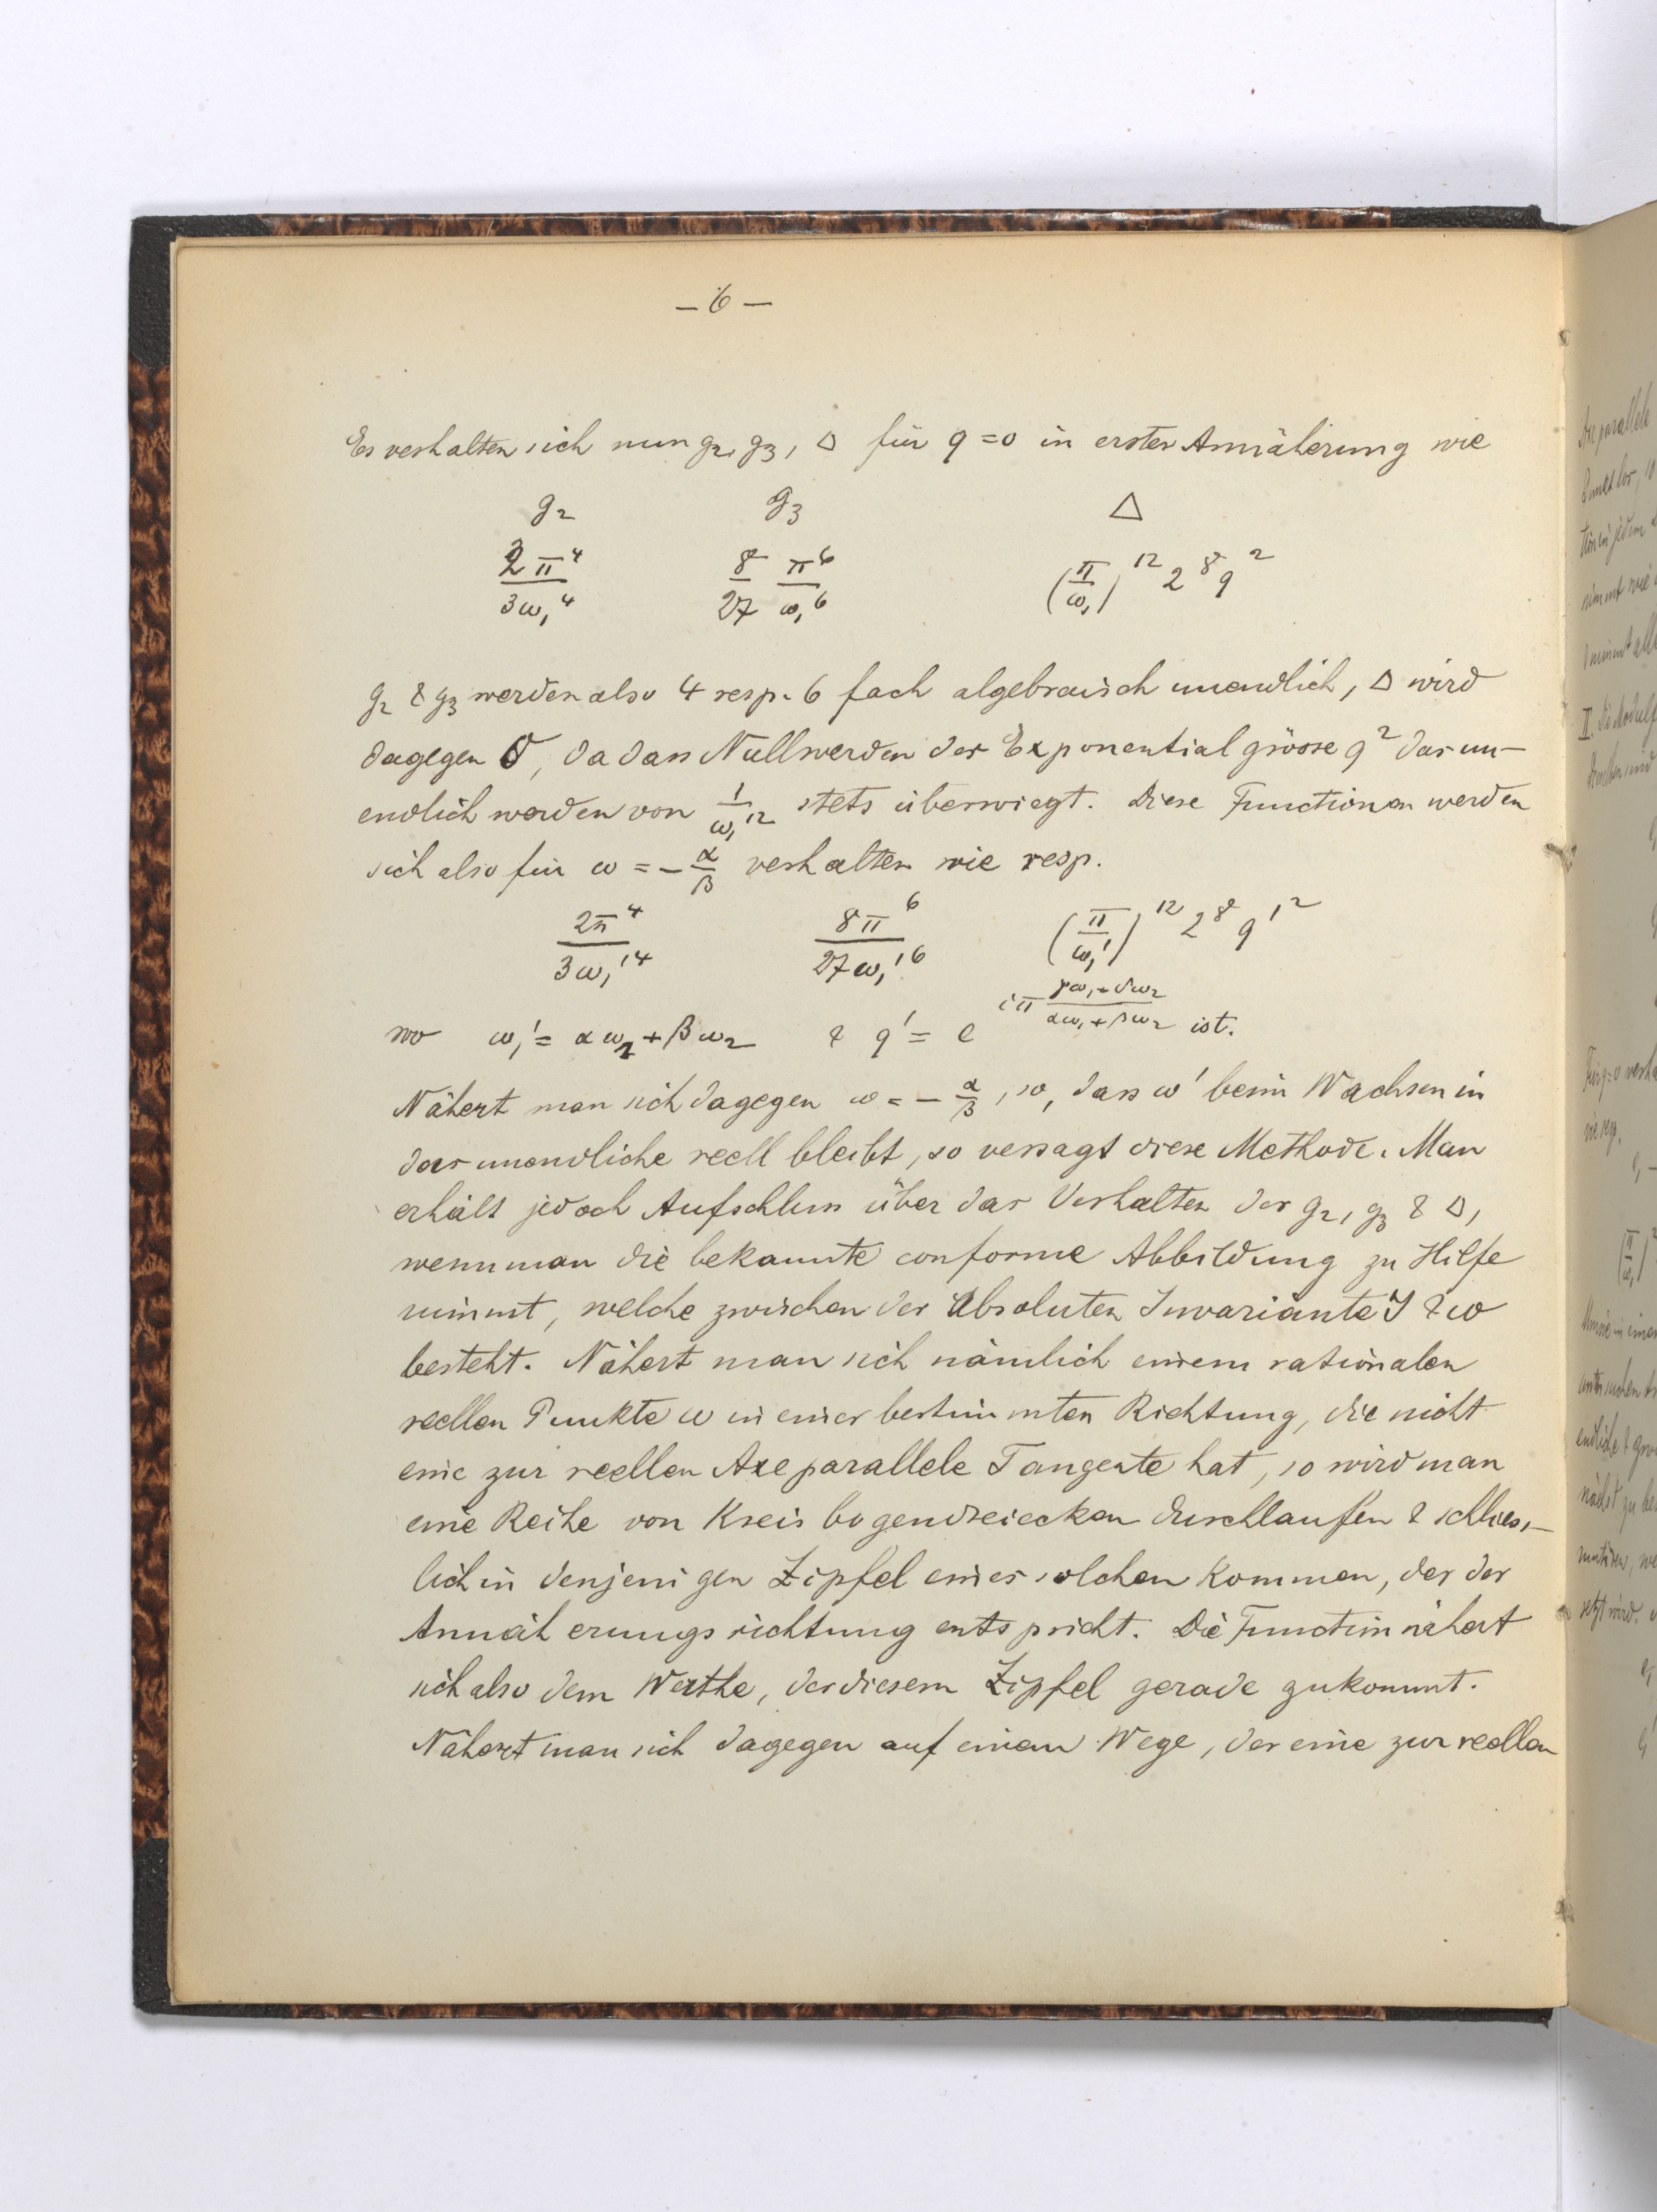 – 6 –
Es verhalten sich nun g₂, g₃, Δ für q = 0 in erster Annäherung wie
g₂ g₃ Δ
2π⁴/3ω₁⁴ 8/27 π⁶/ω₁⁶ (π/ω₁)¹² 2⁸ q²
g₂ & g₃ werden also 4 resp. 6 fach algebraisch unendlich, Δ wird
dagegen 0, da dass Nullwerden der Exponentialgrösse q² das un-
endlich werden von 1/ω₁¹² stets überwiegt. Diese Functionen werden
sich also für ω = – α/β verhalten wie resp.
2π⁴/3ω₁'⁴ 8π⁶/27ω₁'⁶ (π/ω₁')¹² 2⁸ q'²
wo ω₁' = αω₁ + βω₂ & q' = e^(iπ (γω₁+δω₂)/(αω₁+βω₂)) ist.
Nähert man sich dagegen ω = – α/β, so, dass ω' beim Wachsen in
das unendliche reell bleibt, so versagt diese Methode. Man
erhält jedoch Aufschluss über das Verhalten der g₂, g₃ & Δ,
wenn man die bekannte conforme Abbildung zu Hilfe
nimmt, welche zwischen der Absoluten Invariante J & ω
besteht. Nähert man sich nämlich einem rationalen
reellen Punkte ω in einer bestimmten Richtung, die nicht
eine zur reellen Axe parallele Tangente hat, so wird man
eine Reihe von Kreisbogendreiecken durchlaufen & schliess-
lich in denjenigen Zipfel eines solchen kommen, der der
Annäherungsrichtung entspricht. Die Function nähert
sich also dem Werthe, der diesem Zipfel gerade zukommt.
Nähert man sich dagegen auf einem Wege, der eine zur reellen